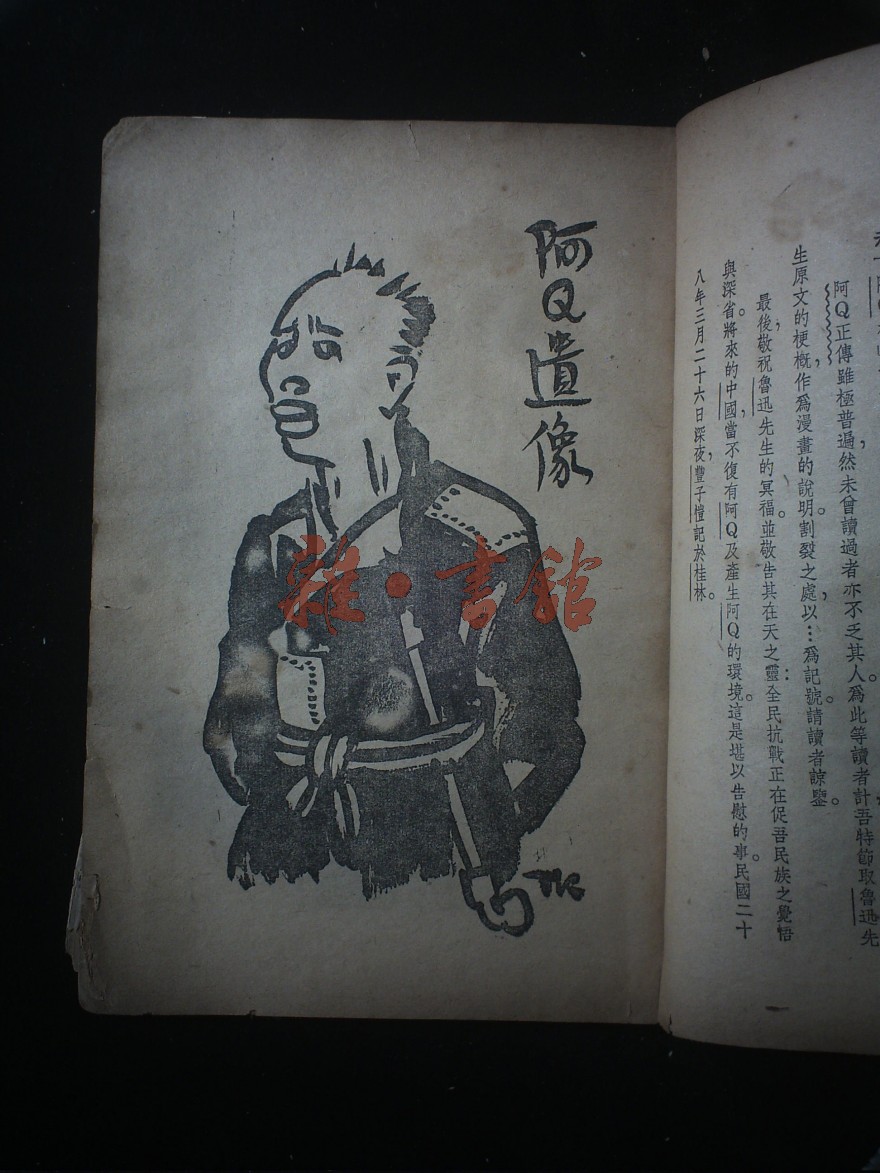 阿Q正傳雖極普遍，然未曾讀過者亦不乏其人。爲此等讀者計，吾特節取魯迅先
生原文的梗概，作爲漫畫的說明。割裂之處，以…爲記號。請讀者諒鑒。
最後，敬祝魯迅先生的冥福。並敬告其在天之靈：全民抗戰正在促吾民族之覺悟
與深省。將來的中國，當不復有阿Q及產生阿Q的環境。這是堪以告慰的事。民國二十
八年三月二十六日深夜，豐子愷記於桂林。
阿Q遺像
TK
雜·書館